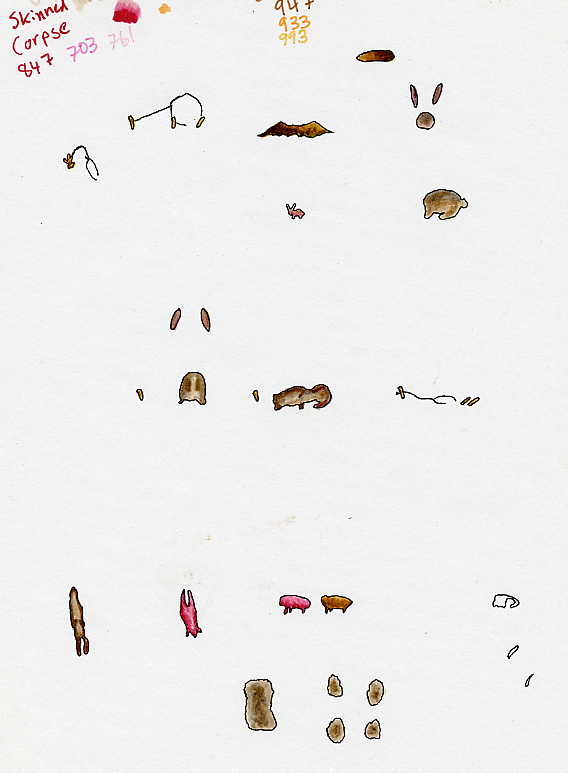 Skinned
Corpse
847 703 761
947
933
993